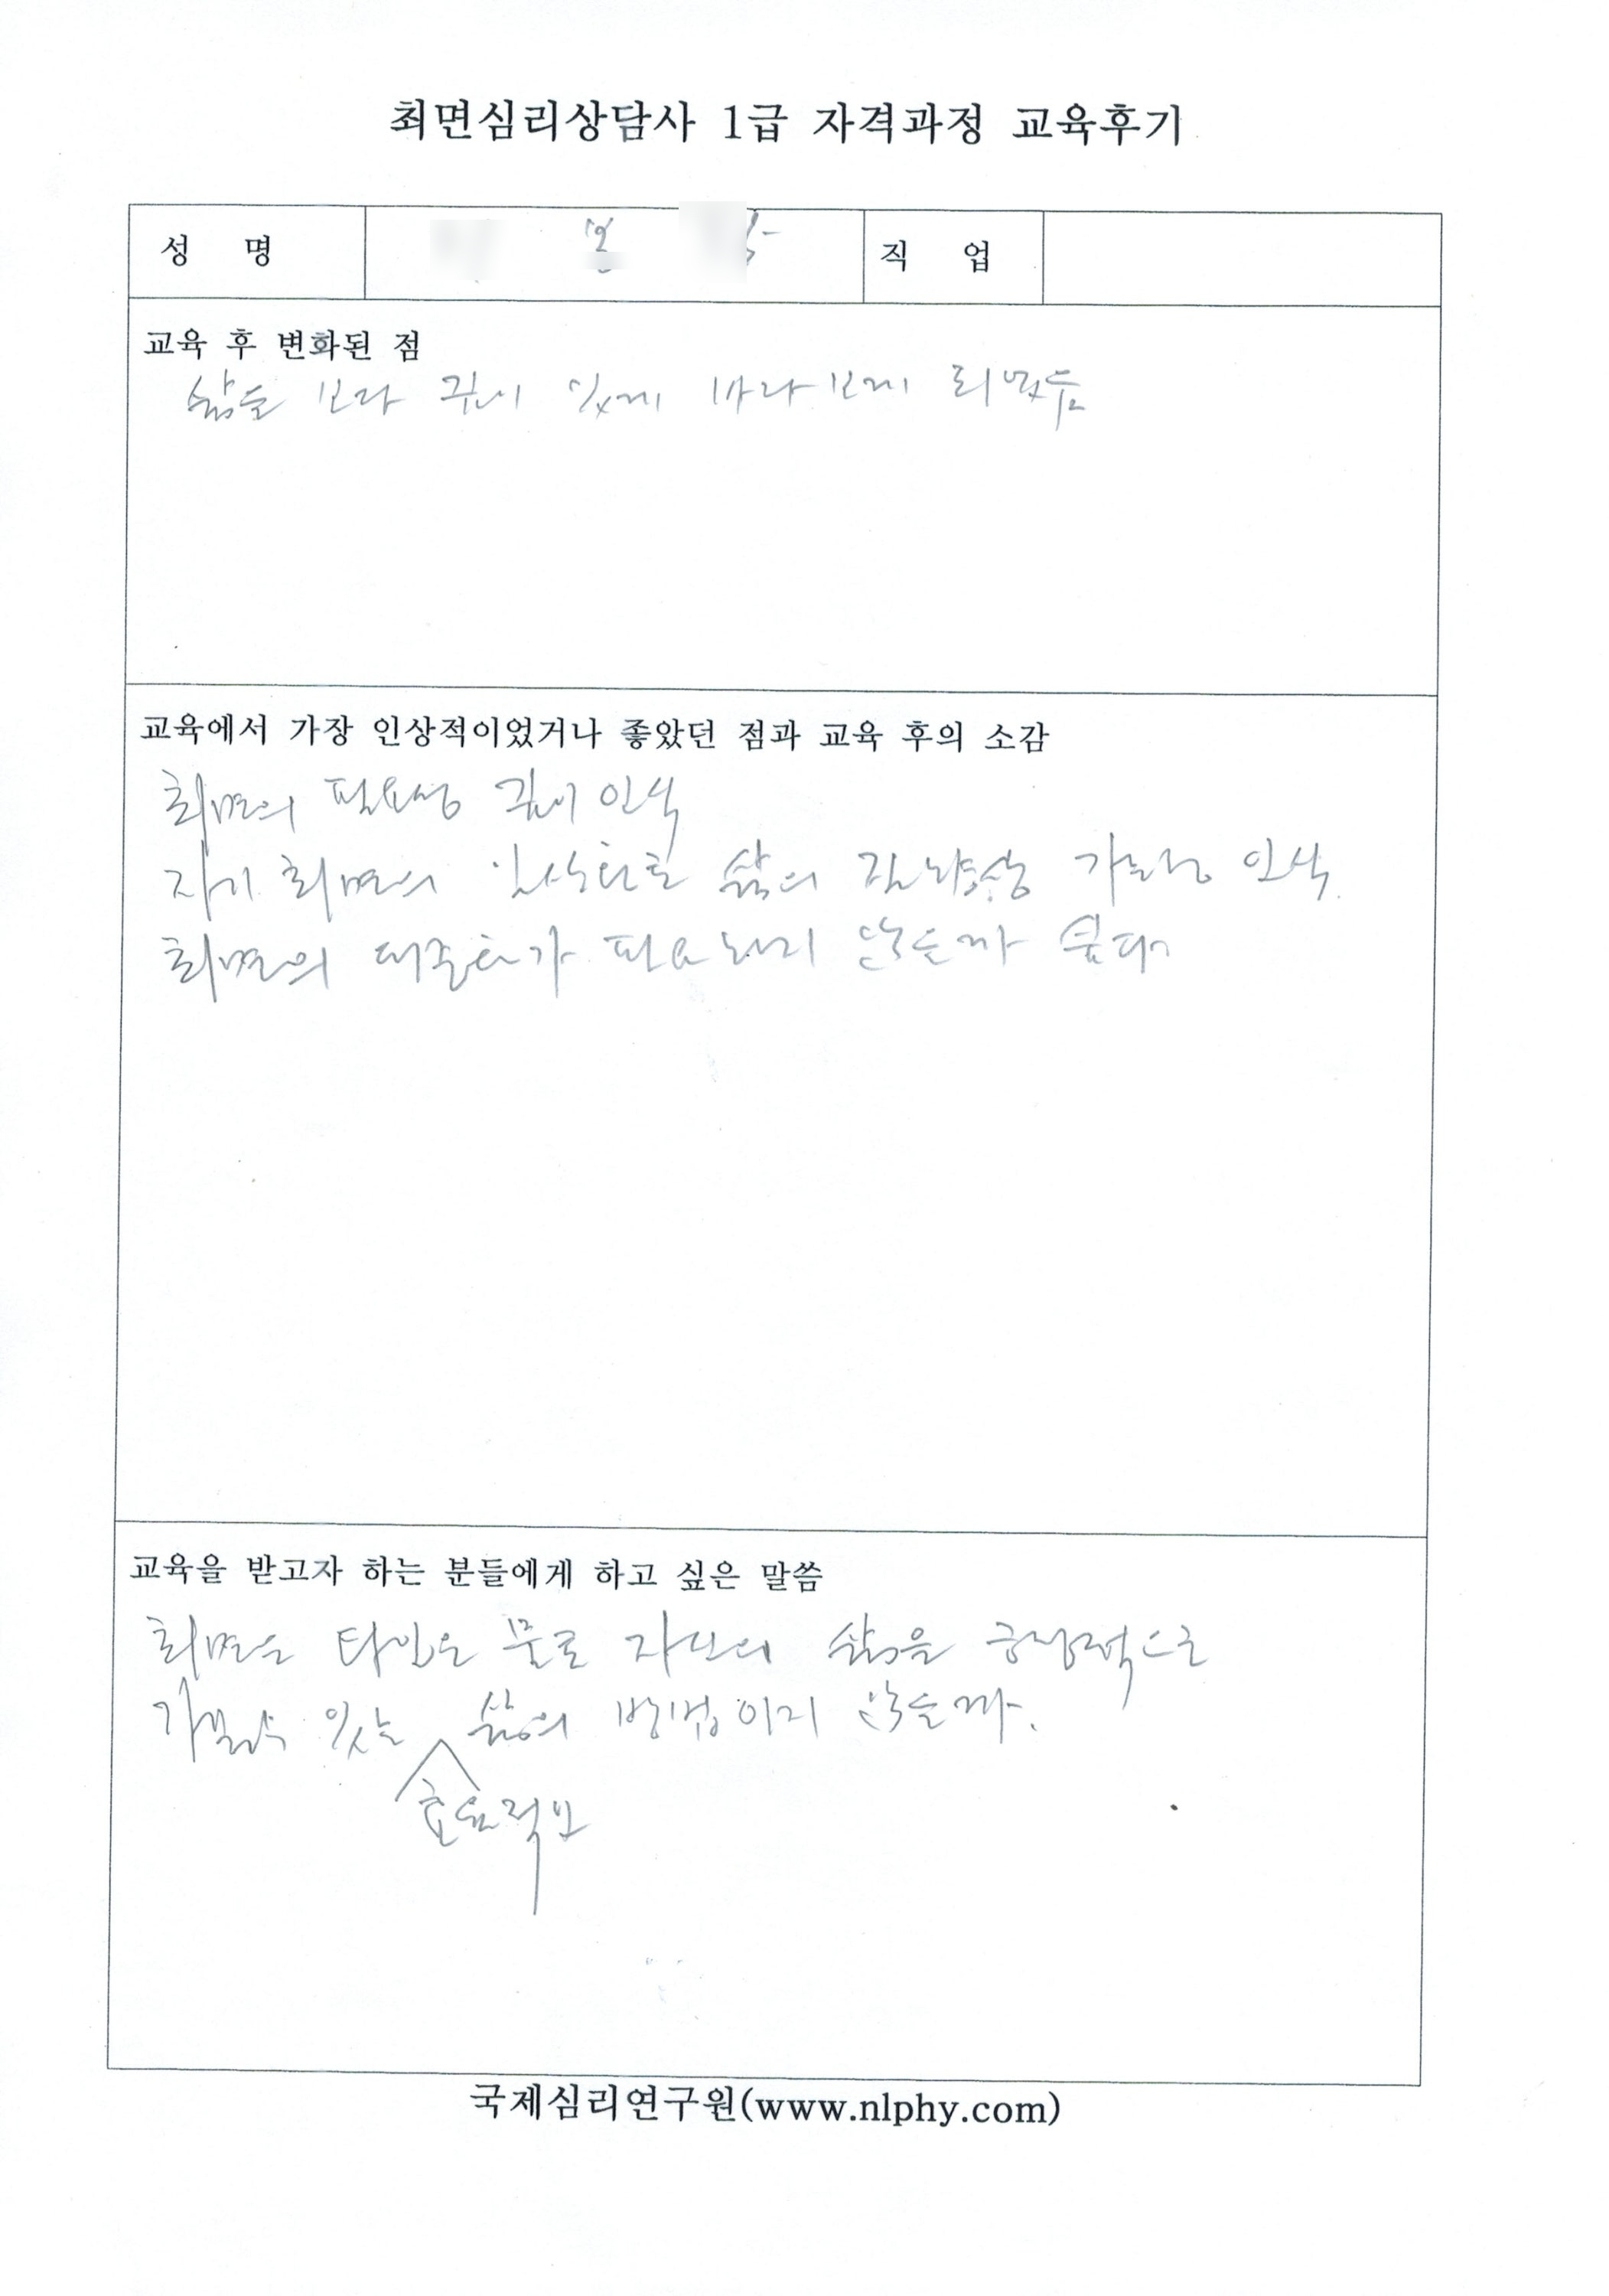 최면심리상담사 1급 자격과정 교육후기
성 명 직 업
교육 후 변화된 점
삶을 보다 깊이 있게 바라보게 되었음
교육에서 가장 인상적이었거나 좋았던 점과 교육 후의 소감
최면의 필요성 깊이 인식
자기 최면의 일상화로 삶의 질 향상 가능성 인식.
최면의 대중화가 필요하지 않을까 싶다
교육을 받고자 하는 분들에게 하고 싶은 말씀
최면은 타인은 물론 자신의 삶을 긍정적으로
가꿀 수 있는 삶의 방법이지 않을까.
효율적인
국제심리연구원(www.nlphy.com)